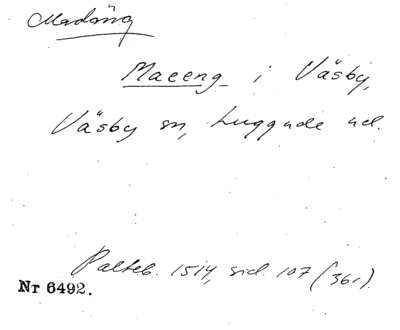 Madäng
Maeeng i Väsby,
Väsby sn, Luggude hd.
Palteb. 1514, sid. 107 (36r).
Nr 6492.